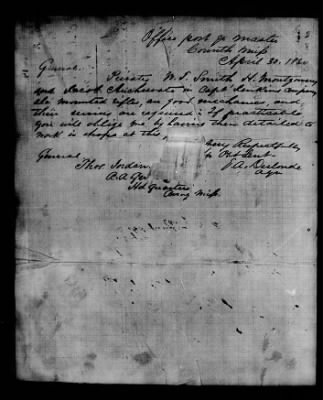 Office post qr master
Corinth Miss
April 30, 186
General
Privates W. T. Smith H. Montgomery
and Jacob in Capt Jenkins Company
Ala mounted rifles, are good mechanics, and
their services are required: if practicable
you will oblige me by having them detailed to
work in shops at this,
Very Respectfully
General
Yr Obt Servt
Thos Jordan
A.A. Gen
Hd Quarters
Miss.